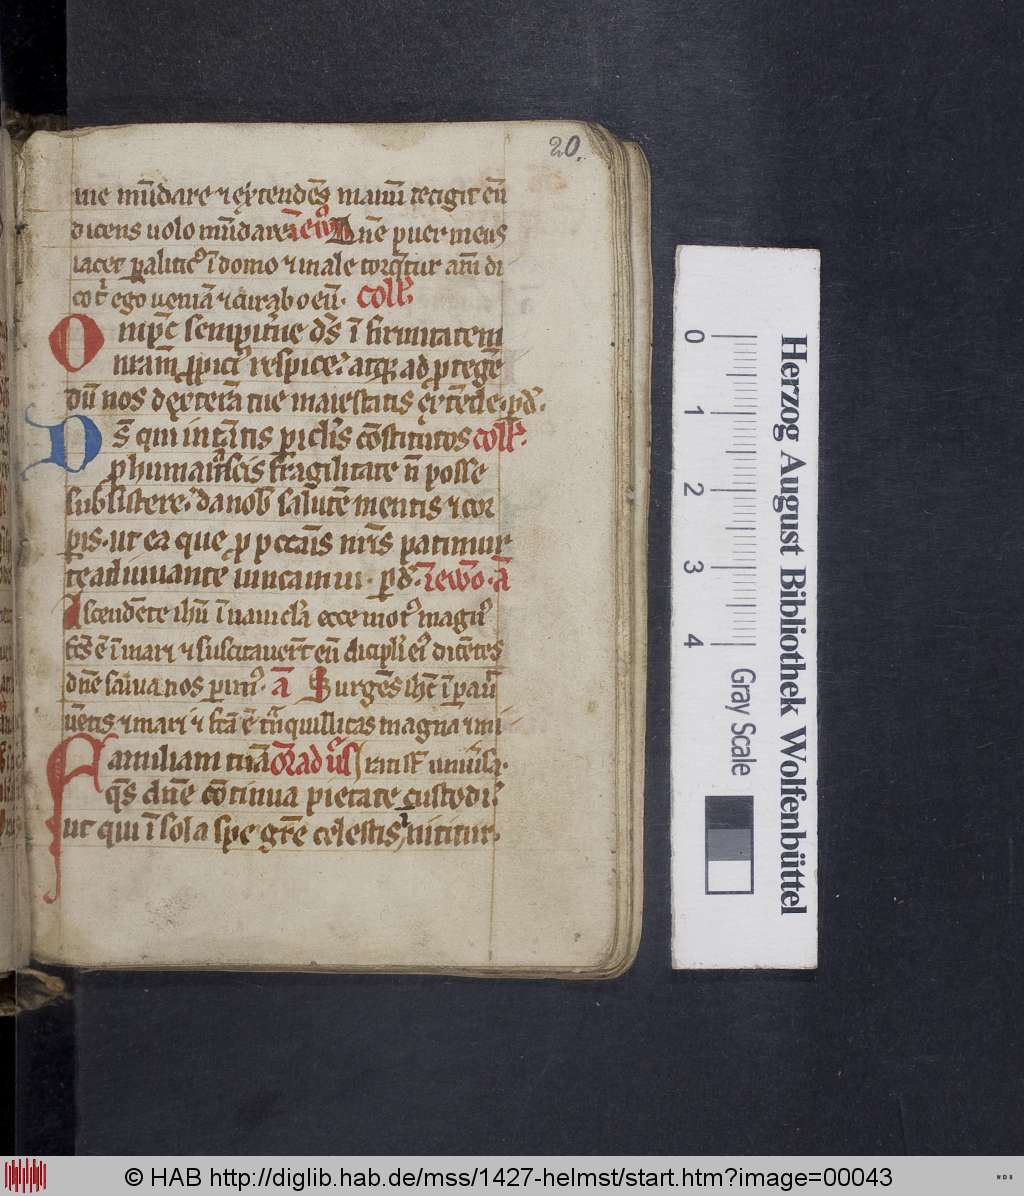 20.
me mūdare ⁊ exꝑtendēs manū tetigit eū
dicens uolo mūdare ī ewo Dn̄e puer meus
iacet ꝑalitic⁹ ī domo ⁊ male torq̄tur am̄ di
co t̄ ego ueniā ⁊ curabo eū. coll̄
Omp̄c sempit̄ne ds̄ īfirmitatem
nr̄am ꝓpici⁹ respice. atqꝫ ad protegē
dū nos dexterā tue maiestatis extēde. ꝑ d.
Ds̄ qui in tātis piclis cōstitutos coll̄.
ꝓ humana scis fragilitate n̄ posse
subsistere. da nob̄ salutē mentis ⁊ cor
ꝑis. ut ea que ꝓ pccāis nr̄is patimur
te adiuuante uincamus. ꝑ d. ī ewō. ā
Ascendēte ihū ī nauiclā ecce mot⁹ magn⁹
fcs̄ ē ī mari ⁊ suscitauer̄t eū discipli ei⁹ dicētes
dn̄e salua nos perim⁹. ā Surgēs ihc̄ īꝑauit
uētis ⁊ mari ⁊ fcā ē trāquillitas magna
Familiam tuā
qs̄ dn̄e cōtinua pietate custodi.
ut qui ī sola spe gr̄e celestis īnititur.
0 1 2 3 4
Gray Scale
Herzog August Bibliothek Wolfenbüttel
© HAB http://diglib.hab.de/mss/1427-helmst/start.htm?image=00043